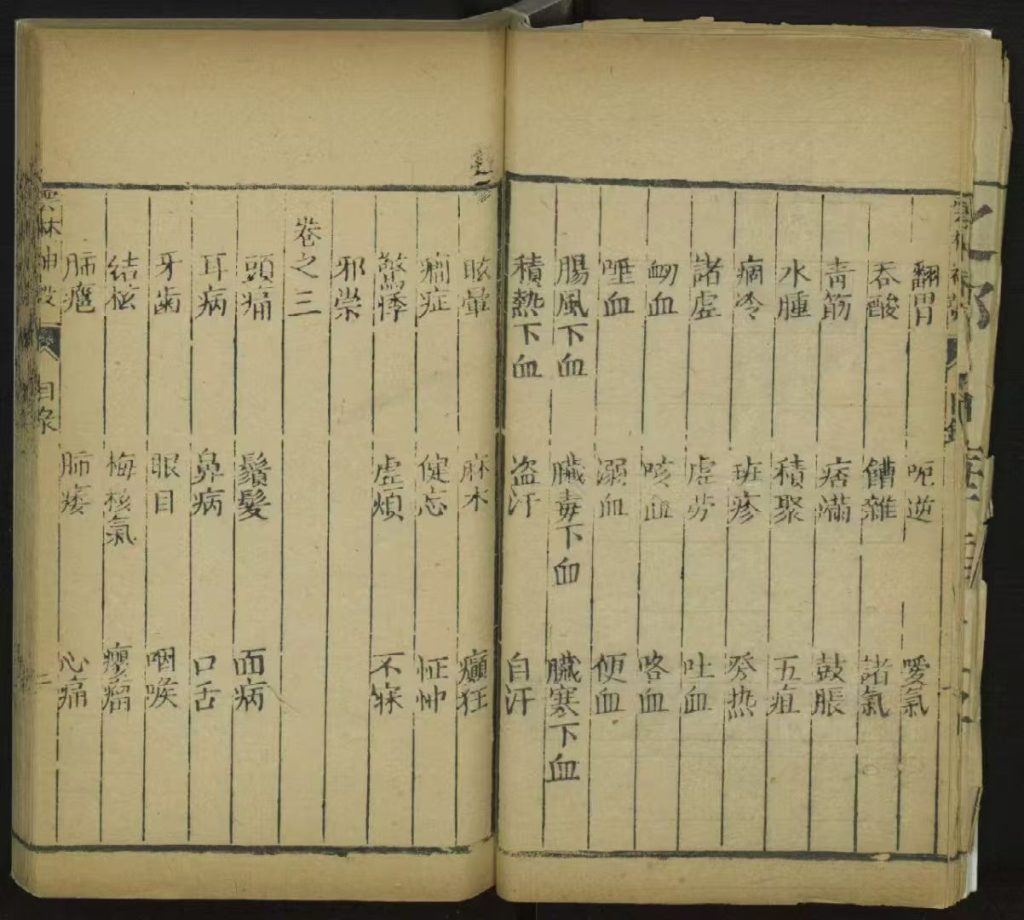 翻胃 呃逆 噯氣
吞酸 饋雜 諸氣
青筋 痞滿 鼓脹
水腫 積聚 五疸
痼冷 斑疹 發热
諸虛 虛劳 吐血
衄血 咳血 咯血
唾血 溺血 便血
腸風下血 臟毒下血 臟寒下血
積熱下血 盗汗 自汗
眩暈 麻木 癲狂
癇症 健忘 怔忡
驚悸 虛煩 不寐
邪祟
卷之三
頭痛 鬚髮 面病
耳病 鼻病 口舌
牙齒 眼目 咽喉
結核 梅核氣 癭瘤
肺癰 肺痿 心痛
雲林神彀
目录
二